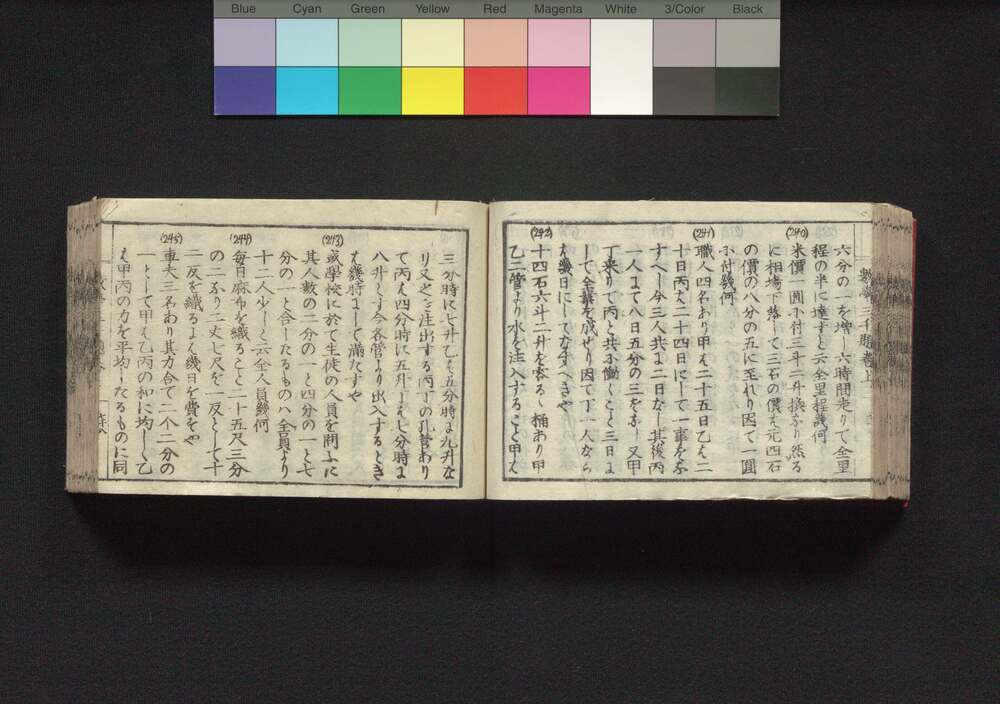 Blue Cyan Green Yellow Red Magenta White 3/Color Black
六分の一を増し六時間走りて全里
程の半に達すと云全里程幾何
(240)
米價一圓に付三斗二升換なり然る
に相場下落して三石の價は元四石
の價の八分の五に至れり因て一圓
に付幾何
(241)
職人四名あり甲は二十五日乙は二
十日丙は二十四日にして一事をな
すべし今三人共に二日なし其後丙
一人にて八日五分の三をなし又甲
丁来りて丙と共に働くこと三日に
して全業を成せり因て丁一人なら
ば幾日にしてなすべきや
(242)
十四石六斗二升を容るゝ桶あり甲
乙二管より水を注入すること甲は
三分時に七升乙は五分時に九升な
り又之を注出する丙丁の孔管あり
て丙は四分時に五升丁は七分時に
八升とす今各管より出入するとき
は幾時にして満たすや
(243)
或學校に於て生徒の人員を問ふに
其人數の二分の一と四分の一と七
分の一と合したるものハ全員より
十二人少しと云全人員幾何
(244)
毎日麻布を織ること二十五尺三分
の二なり二丈七尺を一反として十
二反を織るには幾日を費すや
(245)
車夫三名あり其力合て二个二分の
一として甲は乙丙の和に均しく乙
は甲丙の力を平均したるものに同